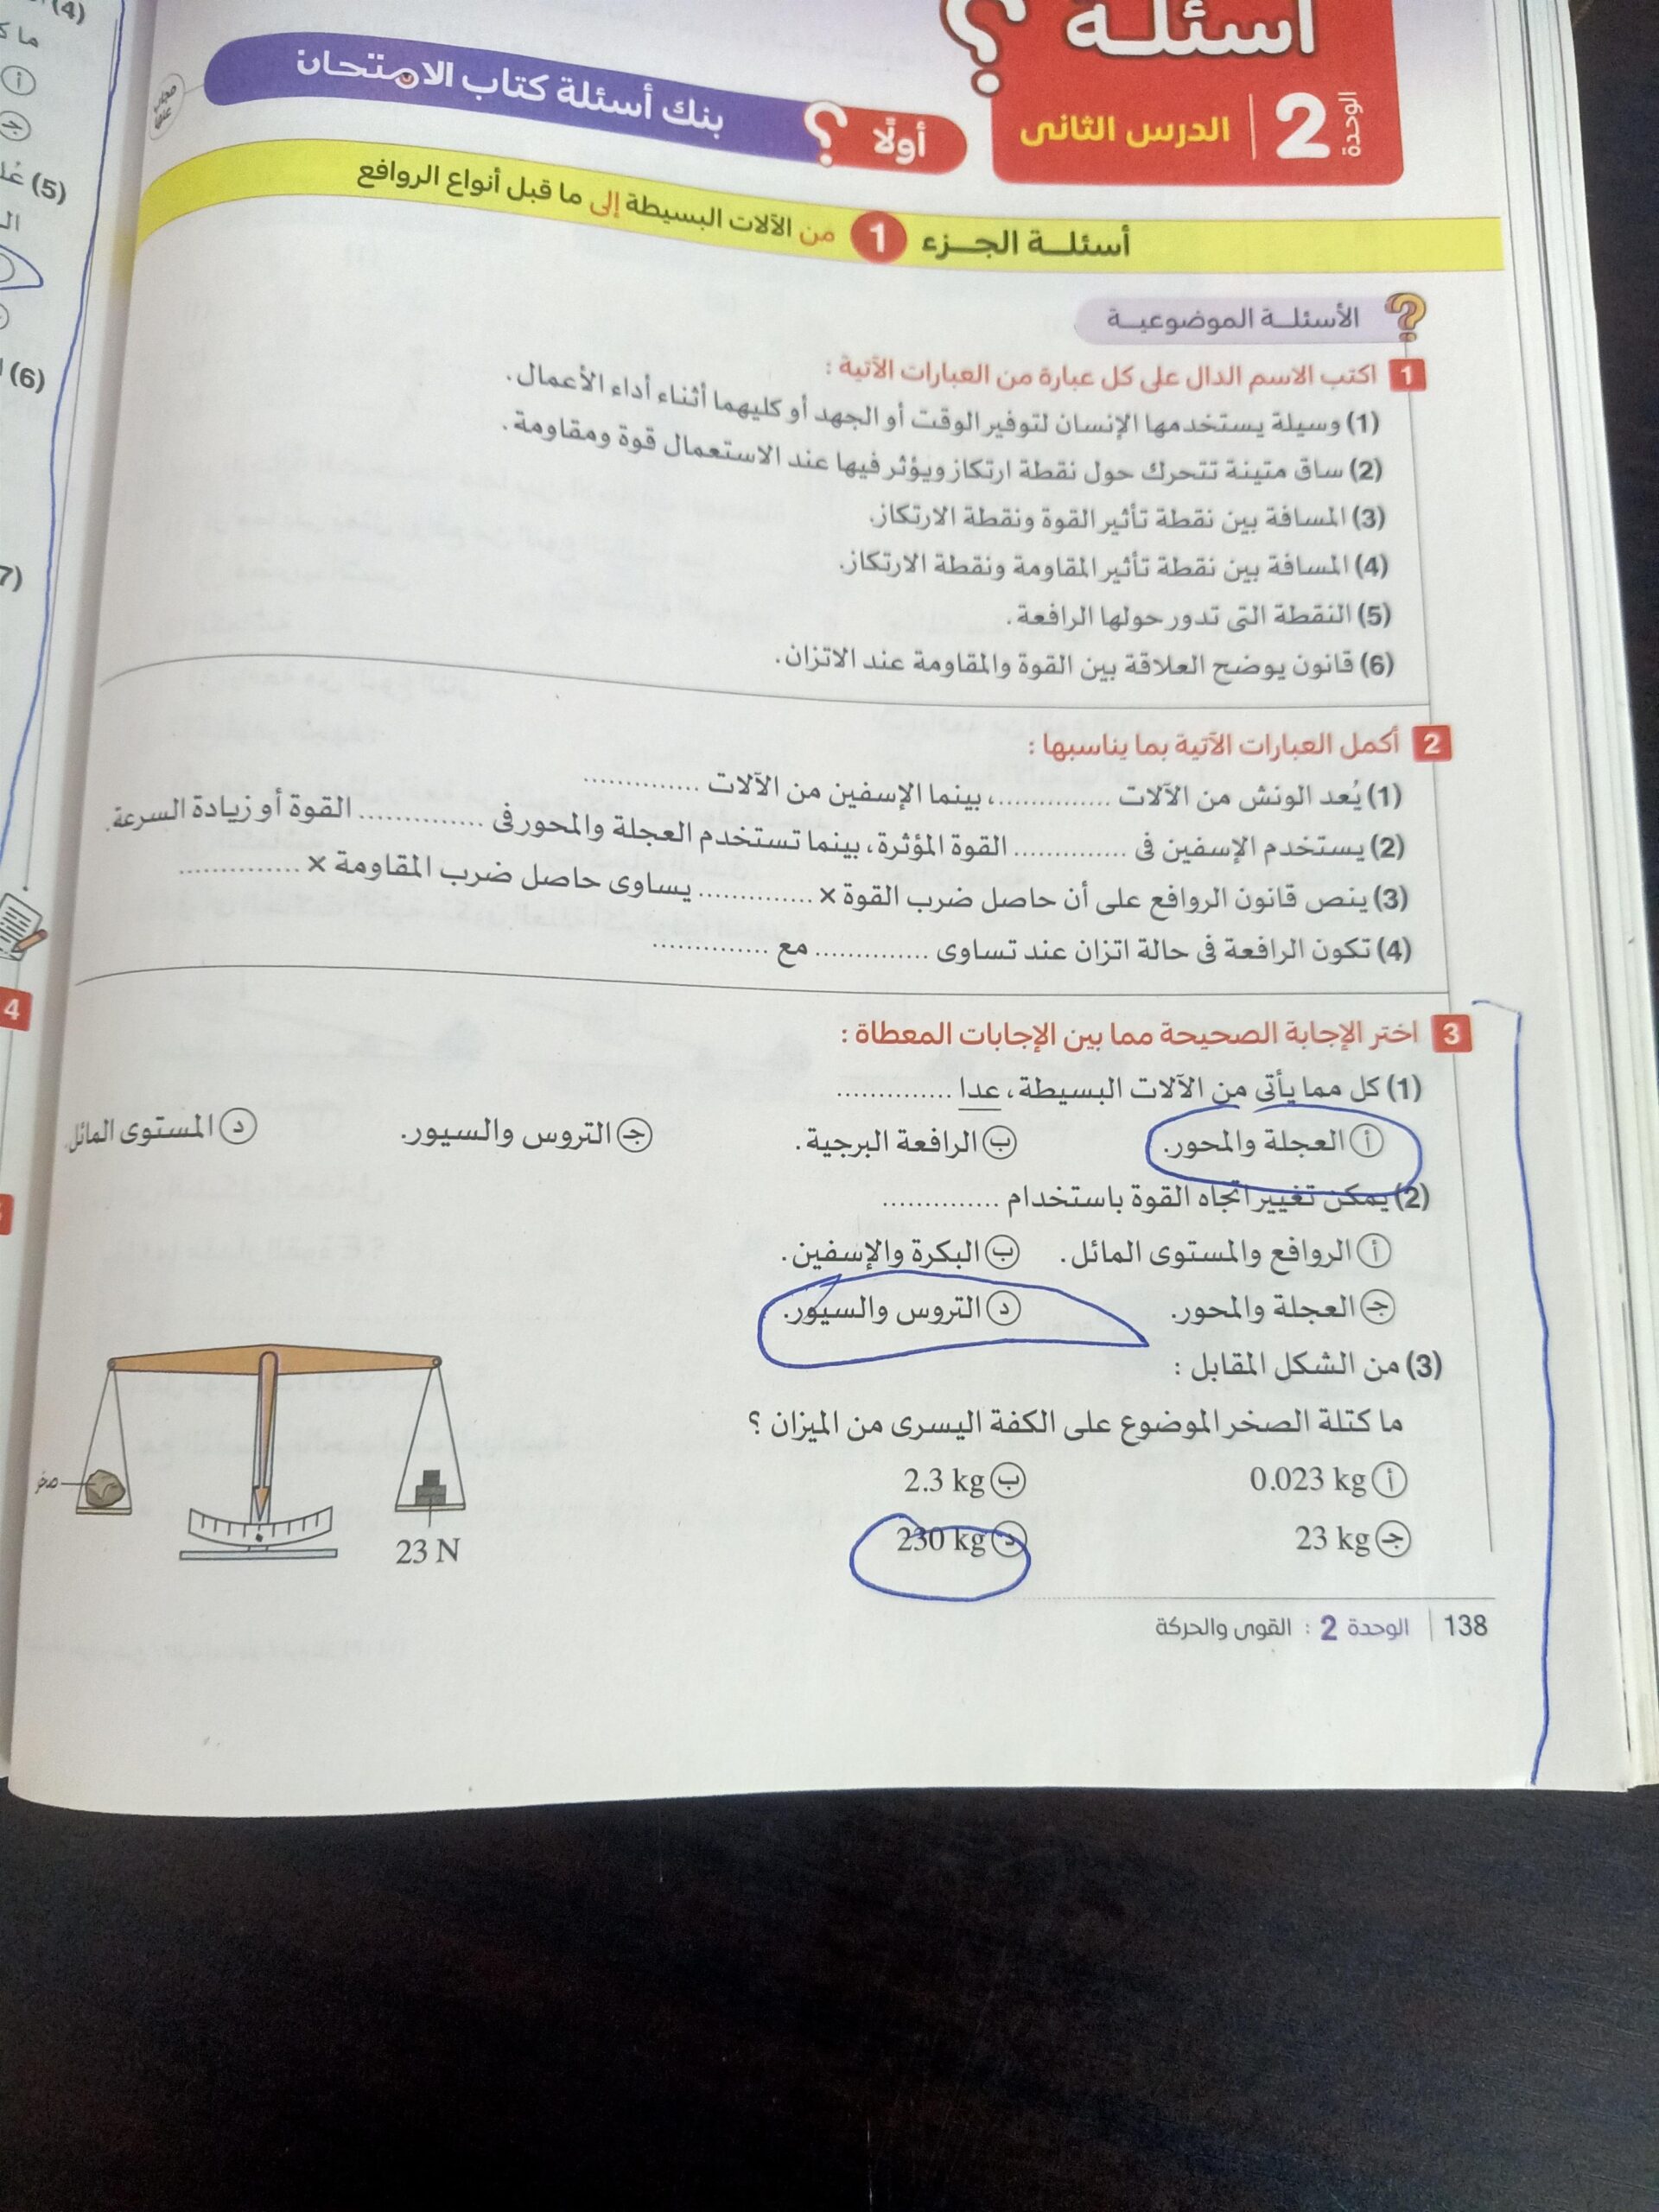 أسئلـة ؟
الوحدة 2 الدرس الثانى
أولًا ؟ بنك أسئلة كتاب الامتحان
مجاب عنها
أسئلـة الجـزء 1 من الآلات البسيطة إلى ما قبل أنواع الروافع
؟ الأسئلـة الموضوعيـة
1 اكتب الاسم الدال على كل عبارة من العبارات الآتية :
(1) وسيلة يستخدمها الإنسان لتوفير الوقت أو الجهد أو كليهما أثناء أداء الأعمال.
(2) ساق متينة تتحرك حول نقطة ارتكاز ويؤثر فيها عند الاستعمال قوة ومقاومة.
(3) المسافة بين نقطة تأثير القوة ونقطة الارتكاز.
(4) المسافة بين نقطة تأثير المقاومة ونقطة الارتكاز.
(5) النقطة التى تدور حولها الرافعة.
(6) قانون يوضح العلاقة بين القوة والمقاومة عند الاتزان.
2 أكمل العبارات الآتية بما يناسبها :
(1) يُعد الونش من الآلات ..............، بينما الإسفين من الآلات ..............
(2) يستخدم الإسفين فى .............. القوة المؤثرة، بينما تستخدم العجلة والمحور فى .............. القوة أو زيادة السرعة.
(3) ينص قانون الروافع على أن حاصل ضرب القوة × .............. يساوى حاصل ضرب المقاومة × ..............
(4) تكون الرافعة فى حالة اتزان عند تساوى .............. مع ..............
3 اختر الإجابة الصحيحة مما بين الإجابات المعطاة :
(1) كل مما يأتى من الآلات البسيطة، عدا ..............
أ العجلة والمحور. ب الرافعة البرجية. جـ التروس والسيور. د المستوى المائل.
(2) يمكن تغيير اتجاه القوة باستخدام ..............
أ الروافع والمستوى المائل. ب البكرة والإسفين.
جـ العجلة والمحور. د التروس والسيور.
(3) من الشكل المقابل :
ما كتلة الصخر الموضوع على الكفة اليسرى من الميزان ؟
أ 0.023 kg ب 2.3 kg
جـ 23 kg د 230 kg
صخر
23 N
138 | الوحدة 2 : القوى والحركة
(4)
(5)
(6)
4